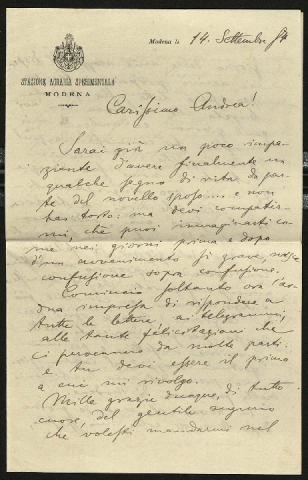 Modena li 14. Settembre 84
STAZIONE AGRARIA SPERIMENTALE
MODENA
Carissimo Andrea!
Sarai già un poco impa-
ziente d'avere finalmente un
qualche segno di vita da par-
te del novello sposo... e non
hai torto: ma devi compatir-
mi, chè puoi immaginarti co-
me nei giorni prima e dopo
d'un avvenimento sì grave, nasce
confusione sopra confusione.
Comincio soltanto ora l'ar-
dua impresa di rispondere a
tutte le lettere, ai telegrammi,
alle tante felicitazioni che
ci pervennero da molte parti
e tu devi essere il primo
a cui mi rivolgo.
Mille grazie dunque, di tutto
cuore, del gentile
che volesti mandarmi nel